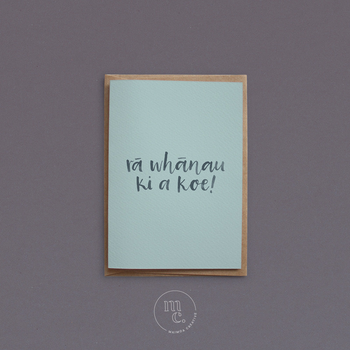 rā whānau
ki a koe!